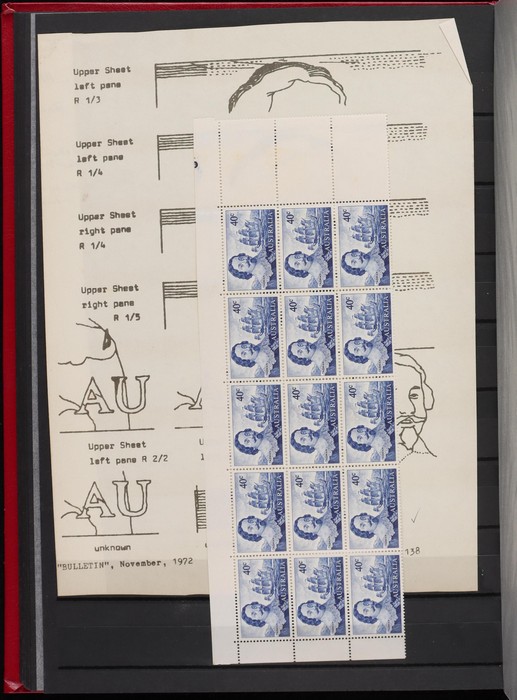 Upper Sheet
left pane
R 1/3
Upper Sheet
left pane
R 1/4
Upper Sheet
right pane
R 1/4
Upper Sheet
right pane
R 1/5
AU
Upper Sheet
left pane R 2/2
AU
unknown
"BULLETIN", November, 1972
138
40c AUSTRALIA
40c AUSTRALIA
40c AUSTRALIA
40c AUSTRALIA
40c AUSTRALIA
40c AUSTRALIA
40c AUSTRALIA
40c AUSTRALIA
40c AUSTRALIA
40c AUSTRALIA
40c AUSTRALIA
40c AUSTRALIA
40c AUSTRALIA
40c AUSTRALIA
40c AUSTRALIA